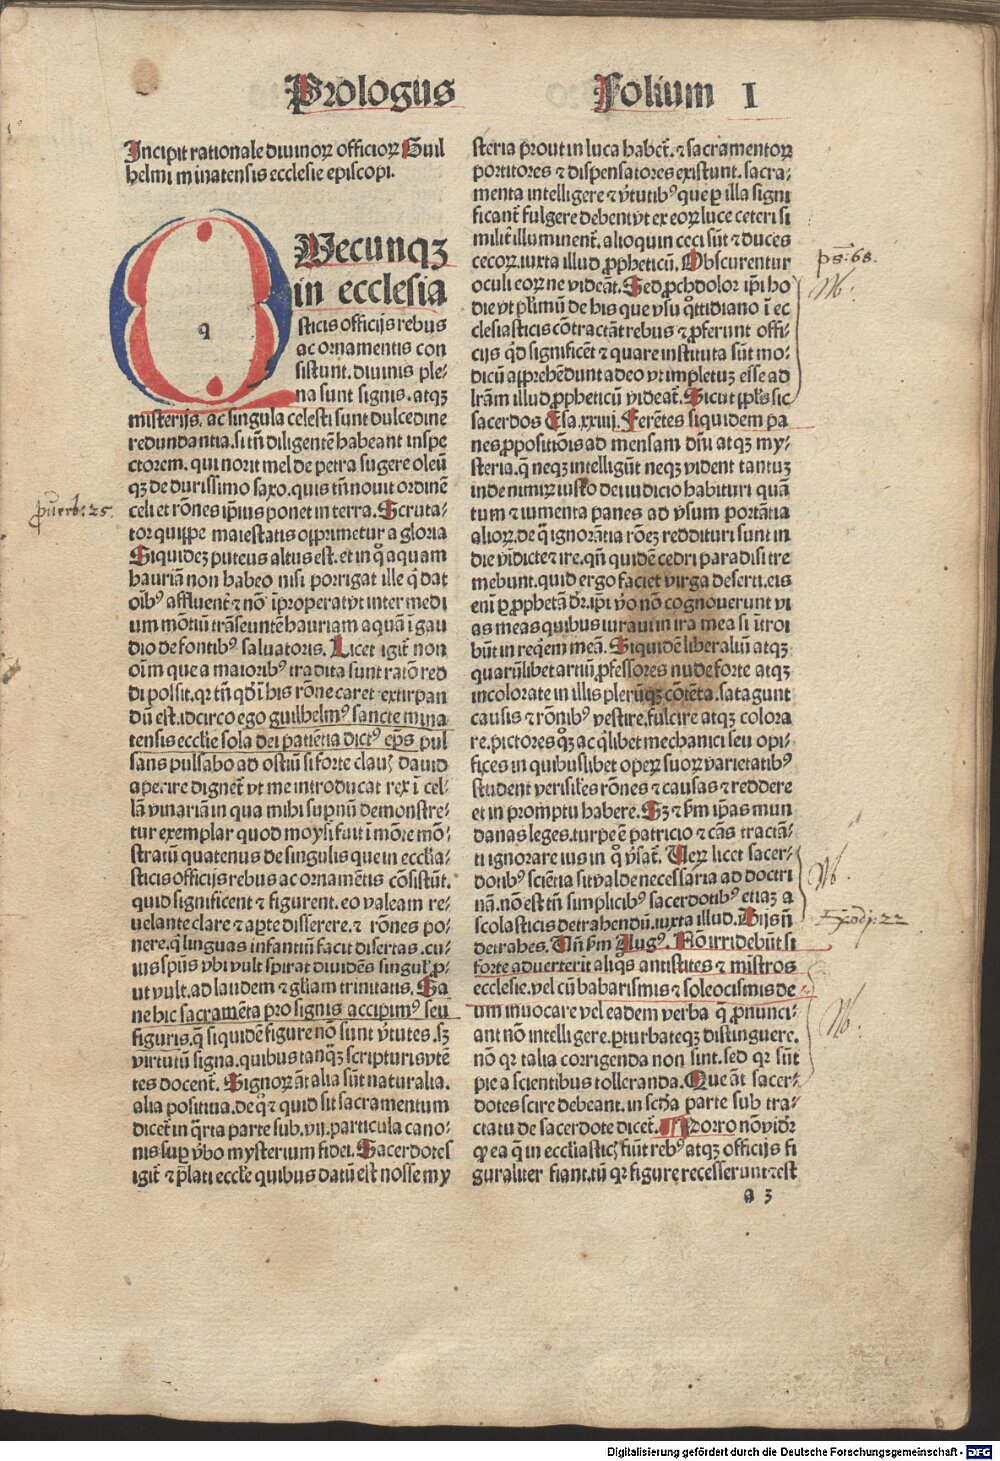 Prologus
Folium I
Incipit rationale diuinoꝝ officioꝝ Guil
helmi minatensis ecclesie episcopi.
q
Wecunqꝫ
in ecclesia
sticis officijs rebus
ac ornamentis con
sistunt. diuinis ple⸗
na sunt signis. atqꝫ
misterijs. ac singula celesti sunt dulcedine
redundantia. si tñ diligentē habeant inspe
ctorem. qui norit mel de petra sugere oleū
qꝫ de durissimo saxo. quis tñ nouit ordinē
celi et rōnes ipsius ponet in terra. Scruta⸗
tor quippe maiestatis opprimetur a gloria
Siquidez puteus altus est. et in qͦ aquam
haurīa non habeo nisi porrigat ille q̇ dat
oībꝰ affluenť ⁊ nō īproperat vt inter medi
um mōtiū trāseuntē hauriam aquā ī gau
dio de fontibꝰ saluatoris. Licet igiť non
oīm que a maioribꝰ tradita sunt ratō red
di possit. qꝛ tñ qđ ī his rōne caret extirpan
dū est. idcirco ego guilhelmꝰ sancte mina
tensis ecclīe sola dei patiētia dictꝰ ep̄s pul
sans pulsabo ad ostiū si forte clauꝭ dauid
aperire digneť vt me introducat rex ī cel⸗
lā vinariā in qua mihi supnū demonstre⸗
tur exemplar quod moysi fuit ī mōte mō⸗
stratū quatenus de singulis que in ecclīa⸗
sticis officijs rebus ac ornamētis cōsistūt.
quid significent ⁊ figurent. eo valeam re⸗
uelante clare ⁊ apte disserere. ⁊ rōnes po⸗
nere. q̇ linguas infantiū facit disertas. cu⸗
ius spūs vbi vult spirat diuidēs singul̕ p⸗
ut vult. ad laudem ⁊ gl̄iam trinitatis. Sa
ne hic sacramēta pro signis accipimꝰ seu
figuris. q̄ siquidē figure nō sunt v̓tutes. sꝫ
virtutū signa. quibus tanqꝫ scripturis vtē
tes docenť. Signoꝝ āt alia sūt naturalia.
alia positiua. de qͦ ⁊ quid sit sacramentum
diceť in q̄rta parte sub. vij. particula cano⸗
nis suꝑ v̓bo mysterium fidei. Sacerdotes
igiť ⁊ p̄lati eccl̄e quibus datū est nosse my
steria prout in luca habeť. ⁊ sacramentoꝝ
portitores ⁊ dispensatores existunt. sacra⸗
menta intelligere ⁊ v̓tutibꝰ que ꝑ illa signi
ficanť fulgere debent vt ex eoꝝ luce ceteri si
militˀ illuminenť. alioquin ceci sūt ⁊ duces
cecoꝝ. iuxta illud ꝓpheticū. Obscurentur
oculi eoꝝ ne videāt. Sed ꝓch dolor ip̄i ho
die vt plimū de his que vsu q̊ttidiano ī ec
clesiasticis cōtractāt rebus ⁊ ꝓferunt offi⸗
cijs qd̕ significēt ⁊ quare instituta sūt mo⸗
dicū apprehēdunt adeo vt impletuꝫ esse ad
lr̄am illud ꝓpheticū videať. Sicut ppl̄s sic
sacerdos Esa. xxiiij. Ferētes siquidem pa
nes ꝓpositiōis ad mensam dn̄i atqꝫ my⸗
steria. q̄ neqꝫ intelligūt neqꝫ vident tantuꝫ
inde nimiꝝ iusto dei iudicio habituri quā
tum ⁊ iumenta panes ad vsum portātia
alioꝝ. de q̇ ignorātia rōeꝫ reddituri sunt in
die vīdicte ⁊ ire. qn̄ quidē cedri paradisi tre
mebunt. quid ergo faciet virga deserti. eis
enī ꝑ ꝓphetā dr̄. ip̄i v̊o nō cognouerunt vi
as meas quibus iuraui in ira mea si ītroi
būt in reqēm meā. Siquidē liberaliū atqꝫ
quarūlibet artiū ꝓfessores nude forte atqꝫ
incolorate in illis plerūqꝫ cōtēta. satagunt
causis ⁊ rōnibꝰ vestire. fulcire atqꝫ colora
re. pictores qͦꝫ ac q̇libet mechanici seu opi⸗
fices in quibuslibet opeꝝ suoꝝ varietatibꝰ
student verisiłes rōnes ⁊ causas ⁊ reddere
et in promptu habere. Sꝫ ⁊ s̄m ip̄as mun
danas leges. turpe ē patricio ⁊ cās tractā⸗
ti ignorare ius in qͦ v̓sať. Veꝝ licet sacer⸗
dotibꝰ sciētia sit valde necessaria ad doctri
nā. nō est tñ simplicibꝰ sacerdotibꝰ etiaꝫ a
scolasticis detrahendū. iuxta illud. Dijs nō
detrahes. Vn̄ s̄m Augꝰ. Nō irridebūt si
forte aduerterit aliq̊s antistites ⁊ mīstros
ecclesie. vel cū babarismis ⁊ soleocismis de⸗
um inuocare vel eadem verba q̄ ꝓnunci⸗
ant nō intelligere. ꝑturbateqꝫ distinguere.
nō qꝛ talia corrigenda non sint. sed qꝛ sūt
pie a scientibus tolleranda. Que āt sacer⸗
dotes scire debeant. in scd̄a parte sub tra⸗
ctatu de sacerdote diceť. Porro nō vidr̄
ꝙ ea q̄ in ecclīasticꝭ fiūt rebꝰ atqꝫ officijs fi
guraliter fiant. tū qꝛ figure recesserunt ⁊ est
a 3
ps: 68.
Nb.
prouerb: 25.
Nb.
Exodj: 22
Nb.
Digitalisierung gefördert durch die Deutsche Forschungsgemeinschaft - DFG